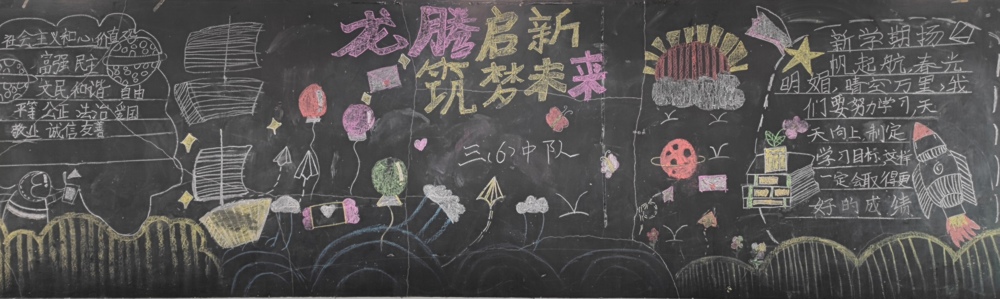 社会主义核心价值观
富强 民主
文民 和谐 自由
平等 公正 法治 爱国
敬业 诚信 友善
龙腾启新
筑梦未来
三(6)中队
新学期扬
帆起航,春光
明媚,晴空万里,我
们要努力学习天
天向上,制定
学习目标,这样
一定会取得更
好的成绩